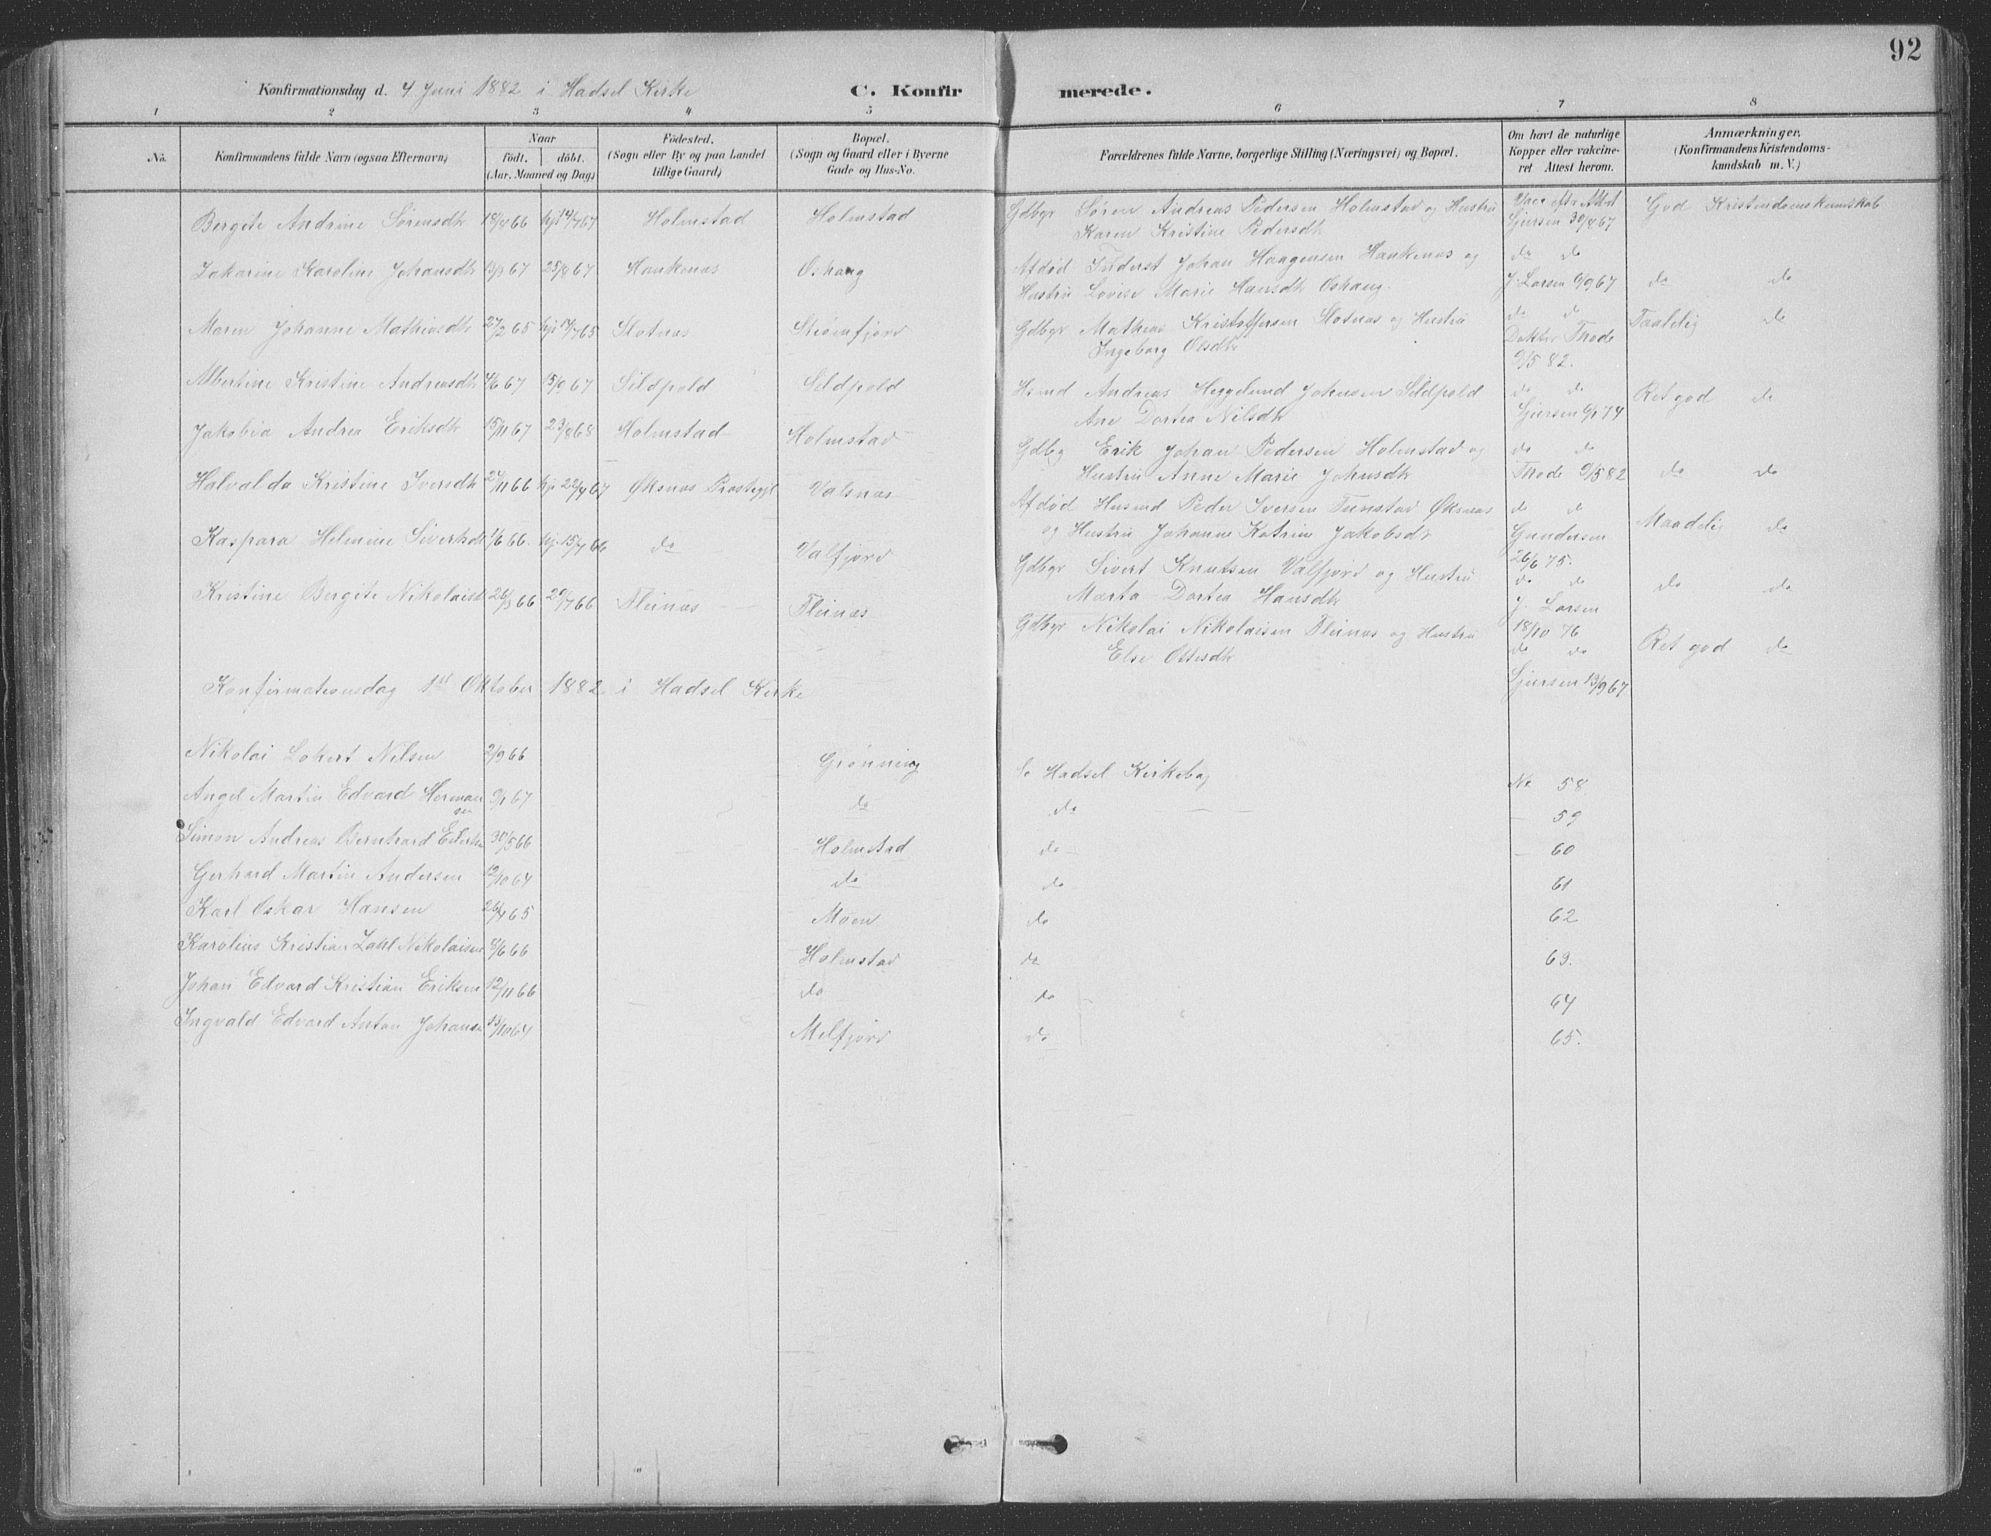 92
Konfirmationsdag d. 4 Juni 1882 i Hadsel Kirke
C. Konfirmerede.
1 2 3 4 5 6 7 8
No. Konfirmandens fulde Navn (ogsaa Efternavn) Naar födt. döbt. (Aar, Maaned og Dag) Födested. (Sogn eller By og paa Landet tillige Gaard) Bopæl. (Sogn og Gaard eller i Byerne Gade og Hus-No. Forældrenes fulde Navne, borgerlige Stilling (Næringsvei) og Bopæl. Om havt de naturlige Kopper eller vakcineret Attest herom. Anmærkninger. (Konfirmandens Kristendomskundskab m. V.)
Bergite Andrine Sörensdtr 18/4 66 hj 14/7 67 Holmstad Holmstad Gdbgr Sören Andreas Pedersen Holmstad og Hustru God Kristendomskundskab
Karen Kristine Pedersdtr 30/8 67
Zakarine Karoline Johansdtr 13/3 67 25/8 67 Haukenæs Oshaug Afdød Inderst Johan Haagensen Haukenæs og do do
Hustru Lovise Marie Hansdtr Oshaug. J. Larsen 9/9 67 do do
Maren Johanne Mathiasdtr 27/2 65 hj 17/7 65 Slotnæs Strömfjord Gdbgr Mathias Kristoffersen Slotnæs og Hustru do do Taalelig do
Ingeborg Olsdtr Doktor Thode 9/5 82.
Albertine Kristine Andreasdtr 4/6 67 15/9 67 Sildpold Sildpold Hsmd Andreas Heggelund Johnsen Sildpold do do Ret god do
Ane Dortea Nilsdtr 6/1 74
Jakobia Andrea Eriksdtr 15/11 67 23/8 68 Holmstad Holmstad Gdbg Erik Johan Pedersen Holmstad og do do
Hustru Anne Marie Johnsdtr Thode 9/5 82 do do
Halvalda Kristine Iversdtr 24/11 66 hj 22/4 67 Øksnæs Prostegjl Valsnæs Afdød Husmd Peder Iversen Tunstad Øksnæs do do
og Hustru Johanne Katrine Jakobsdtr Gundersen 26/6 75. Maadelig do
Kaspara Helmine Sivertsdtr 1/6 66. hj 15/7 66 do Valfjord Gdbgr Sivert Knutsen Valfjord og Hustru do do do do
Marta Dortea Hansdtr J. Larsen 18/10 76
Kristine Bergite Nikolaisd 26/3 66 29/7 66 Fleinæs Fleinæs Gdbgr Nikolai Nikolaisen Fleinæs og Hustru do do Ret god do
Else Ottesdtr 13/9 67
Konfirmationsdag 1st Oktober 1882 i Hadsel Kirke
Nikolai Lohert Nilsen 2/9 66 Grönning Se Hadsel Kirkebog No 58
Angel Martin Edvard Hermansen 9/1 67 do do 59
Simon Andreas Bernhard 30/5 66 Holmstad do 60
Gerhard Martin Andersen 12/10 64 do do 61
Karl Oskar Hansen 26/4 65 Moen do 62
Karolius Kristian Zahl Nikolaisen 6/6 66 Holmstad do 63.
Johan Edvard Kristian Eriksen 12/11 66 do do 64
Ingvald Edvard Anton Johanse 13/10 64 Melfjord do 65.